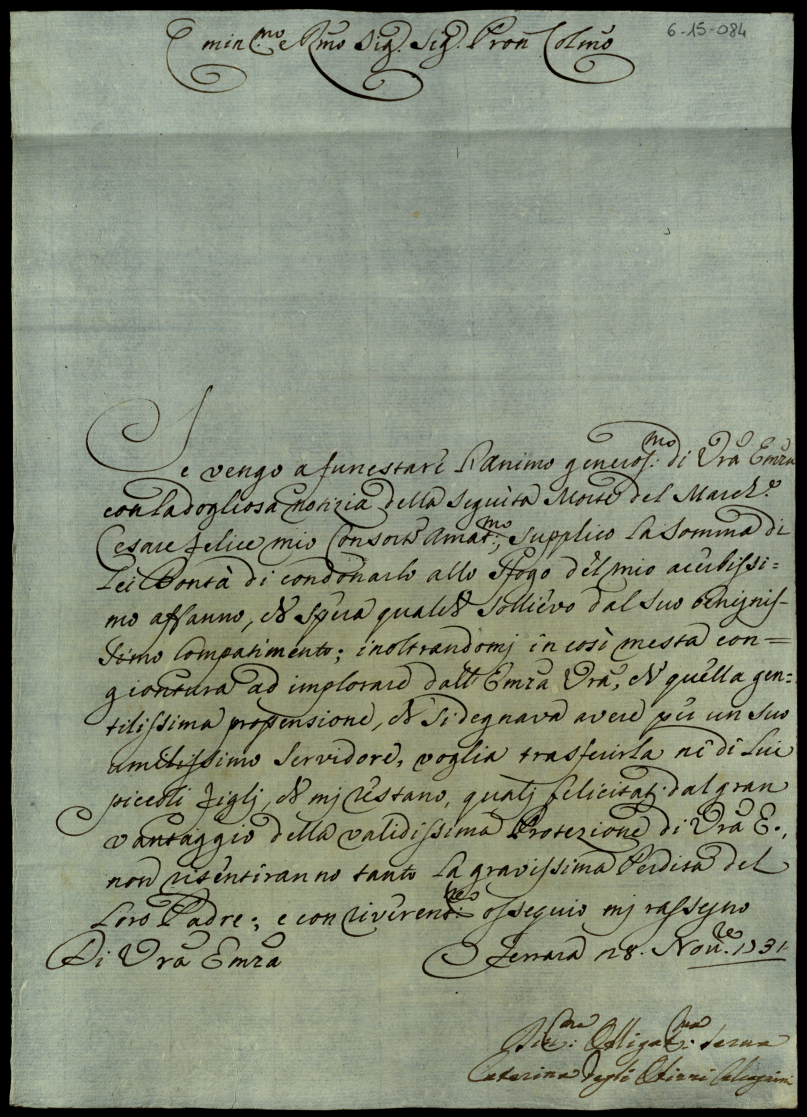 6-15-084
Emin.mo e Rmo Sig. Sig. Pron Colmo
Se vengo a funestare l'animo generos.mo di Vra Emza
con la dogliosa notizia della seguita Morte del March.e
Cesare felice mio Consorte Amat.mo, supplico la somma di
Lei Bontà di condonarlo allo sfogo del mio acerbissi=
mo affanno, che spera qualche sollievo dal suo benignis-
simo Compatimento; inoltrandomj in così mesta con=
giontura ad implorare dall'Emza Vra, che quella gen=
tilissima propensione, che si degnava avere per un suo
umilissimo servidore, voglia trasferirla ne di Lui
piccoli figlj, che mj restano, qualj felicitatj dal gran
vantaggio della validissima Protezione di Vra E.,
non risentiranno tanto la gravissima Perdita del
Loro Padre; e con riverent.mo ossequio mj rassegno
Di Vra Emza Ferrara 28. Nov.re 1731
Obligat.ma Serua
Caterina degli Obizzi Calcagnini